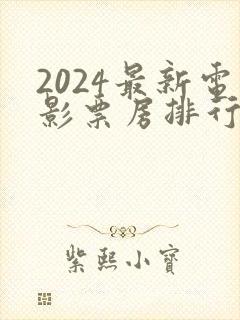 2024最新电
影票房排行
紫熙小宝